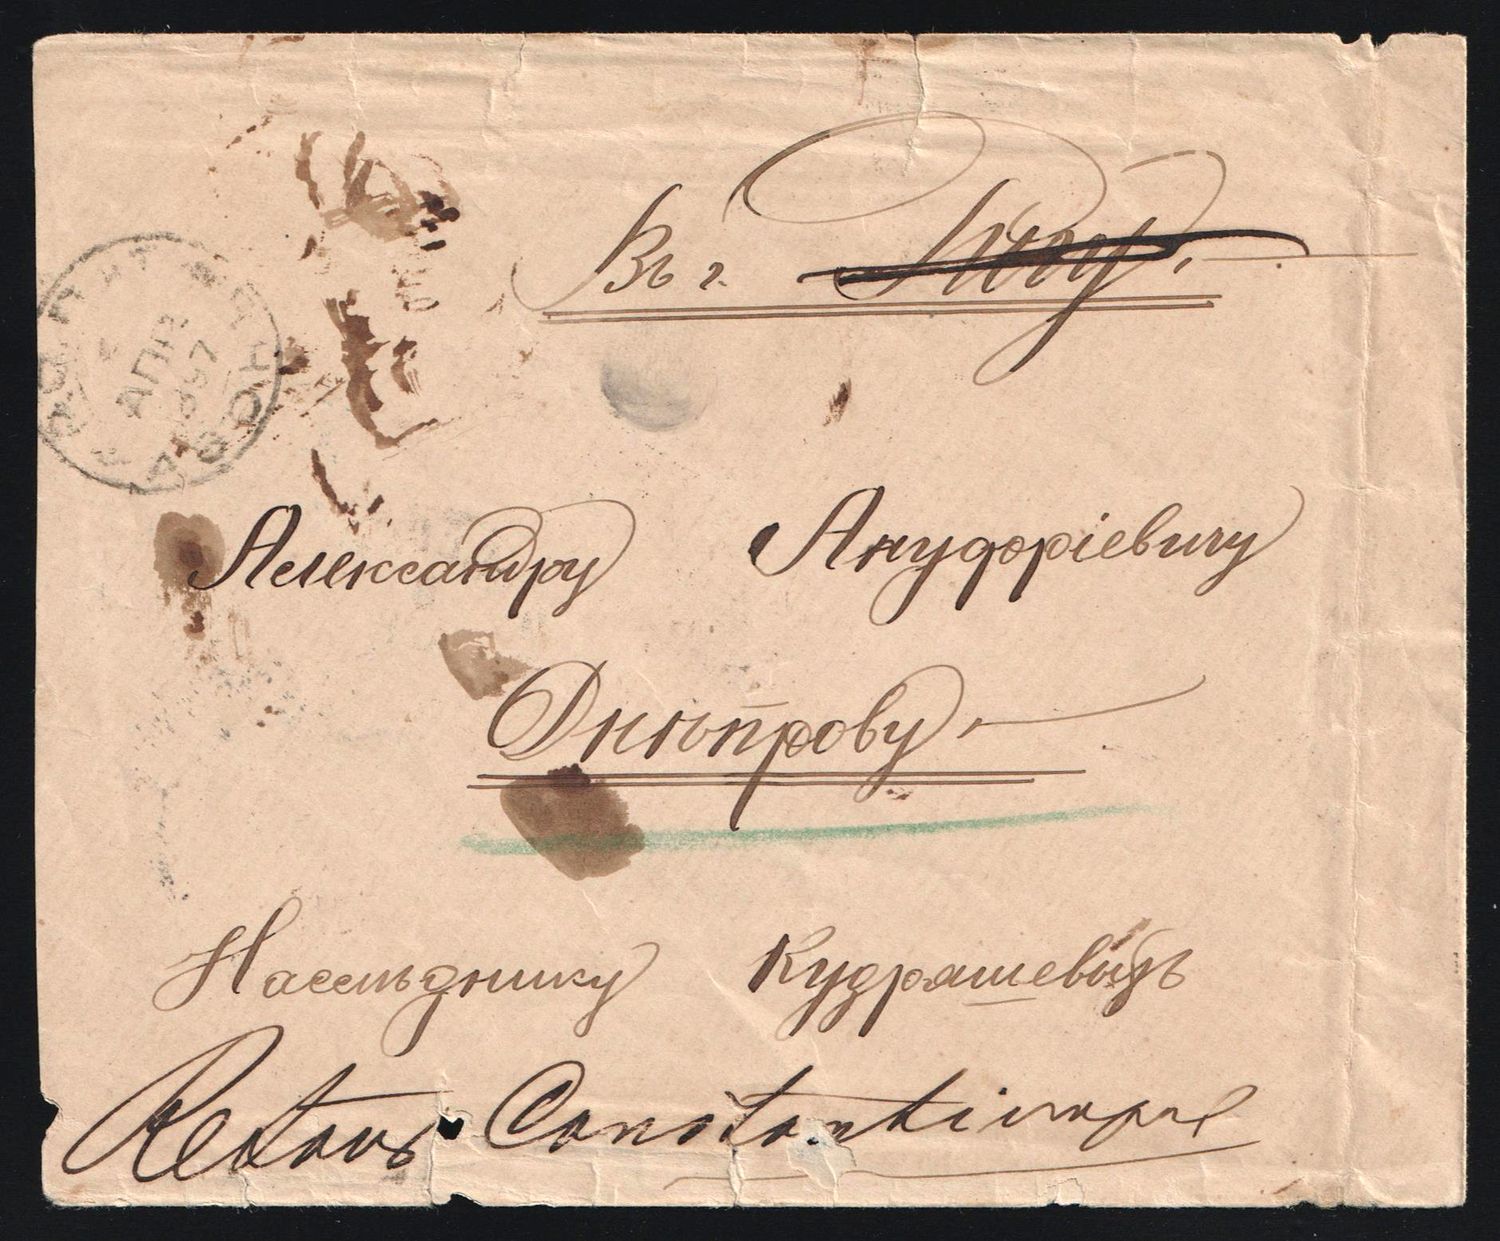 Въ г.
АПР
Александру Ануфріевичу
Днѣпрову
Наслѣднику Кудряшевыхъ
Retour Constantinople